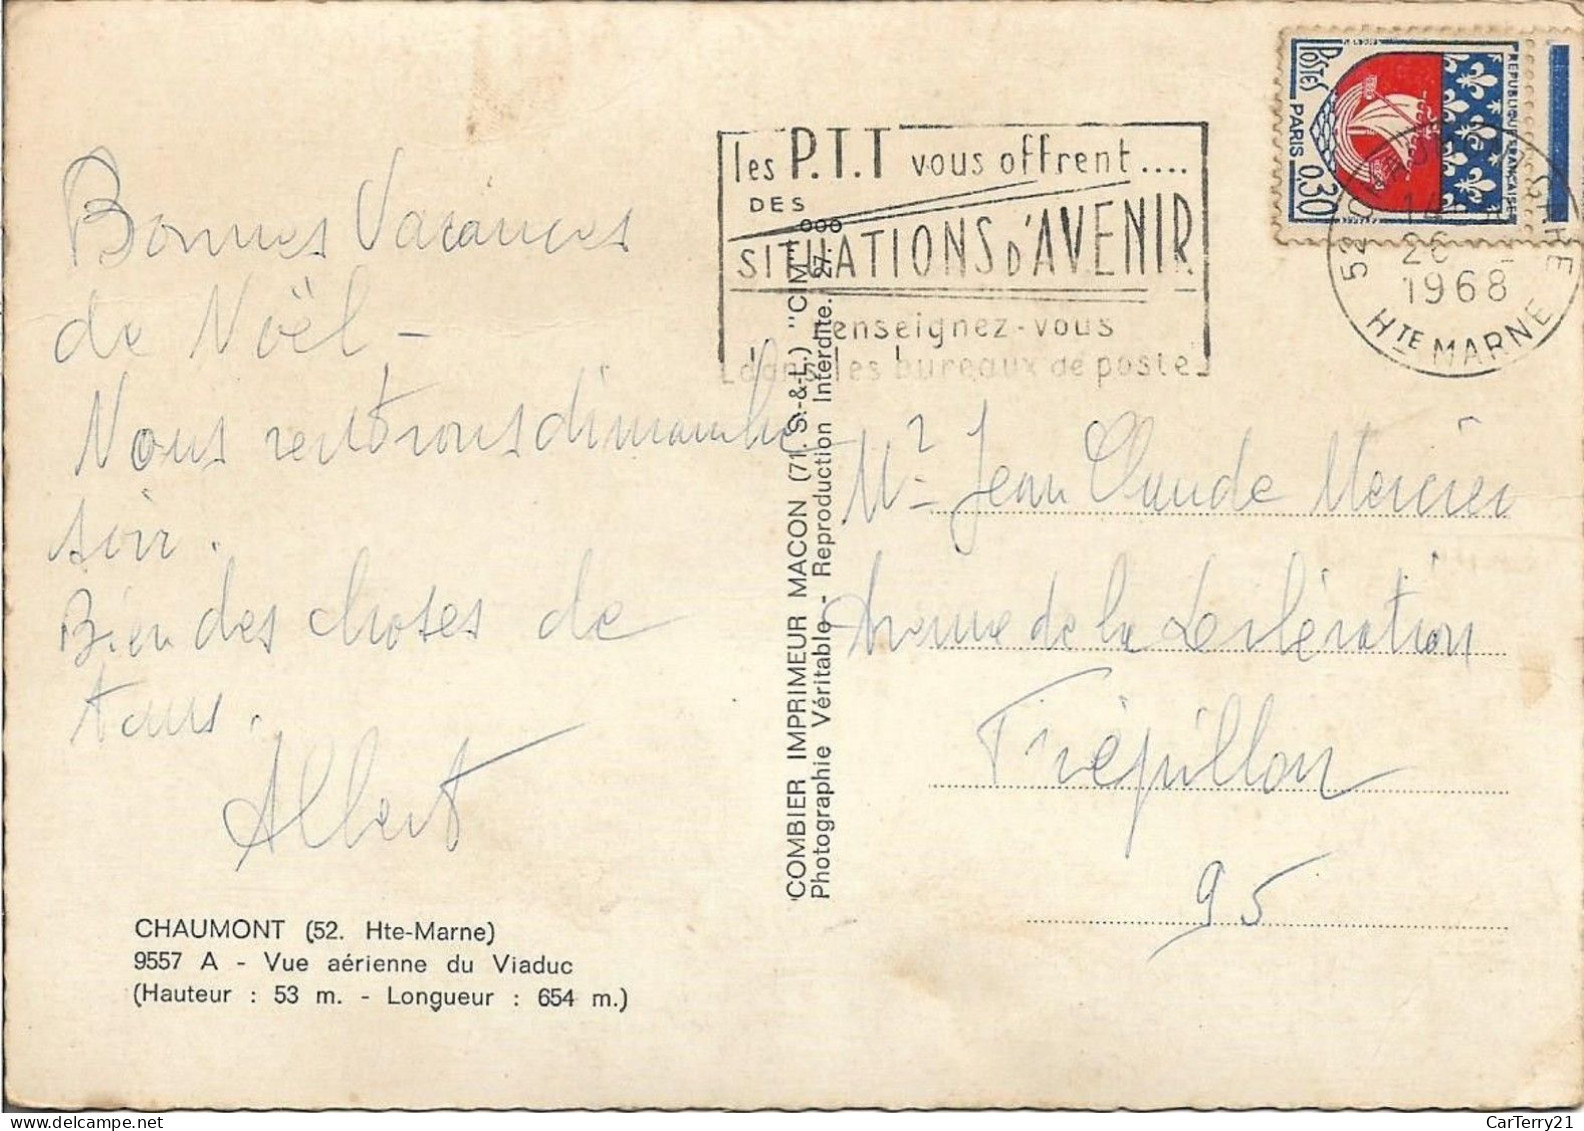 Bonnes Vacances
de Noël -
Nous rentrons dimanche
soir.
Bien des choses de
tous.
Albert
CHAUMONT (52. Hte-Marne)
9557 A - Vue aérienne du Viaduc
(Hauteur : 53 m. - Longueur : 654 m.)
COMBIER IMPRIMEUR MACON (71. S.-&-L.) "CIM"
Photographie Véritable - Reproduction Interdite. 27.
les P.T.T vous offrent....
DES
SITUATIONS D'AVENIR
renseignez-vous
dans les bureaux de poste
POSTES
PARIS 0,30
REPUBLIQUE FRANÇAISE
52
1968
HTE MARNE
Mr Jean Claude Mercier
Avenue de la Libération
Frépillon
95
© CarTerry21